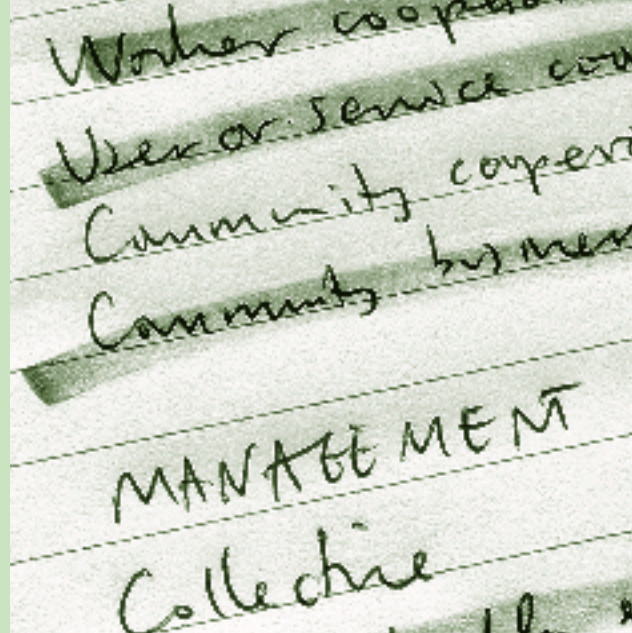 Worker coopera
User or service coo
Community coopera
Community busines
MANAGEMENT
Collective